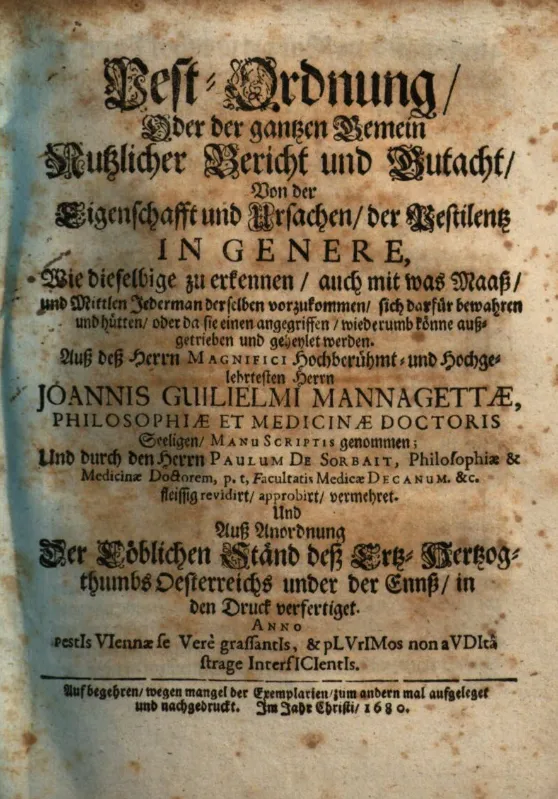 Pest-Ordnung/
Oder der gantzen Gemein
Nutzlicher Bericht und Gutacht/
Von der
Eigenschafft und Ursachen/ der Pestilentz
IN GENERE,
Wie dieselbige zu erkennen / auch mit was Maaß/
und Mittlen Jederman derselben vorzukommen/ sich darfür bewahren
und hütten/ oder da sie einen angegriffen / wiederumb könne auß-
getrieben und geheylet werden.
Auß deß Herrn MAGNIFICI Hochberühmt- und Hochge-
lehrtesten Herrn
JOANNIS GUILIELMI MANNAGETTÆ,
PHILOSOPHIÆ ET MEDICINÆ DOCTORIS
Seeligen/ MANUSCRIPTIS genommen;
Und durch den Herrn PAULUM DE SORBAIT, Philosophiæ &
Medicinæ Doctorem, p. t, Facultatis Medicæ DECANUM. &c.
fleissig revidirt/ approbirt/ vermehret.
Und
Auß Anordnung
Der Löblichen Ständ deß Ertz-Hertzog-
thumbs Oesterreichs under der Ennß/ in
den Druck verfertiget.
ANNO
pestIs VIennæ se Verè grassantIs, & pLVrIMos non aVDItâ
strage InterfICIentIs.
Auf begehren/ wegen mangel der Exemplarien/ zum andern mal aufgeleget
und nachgedruckt. Im Jahr Christi/ 1680.